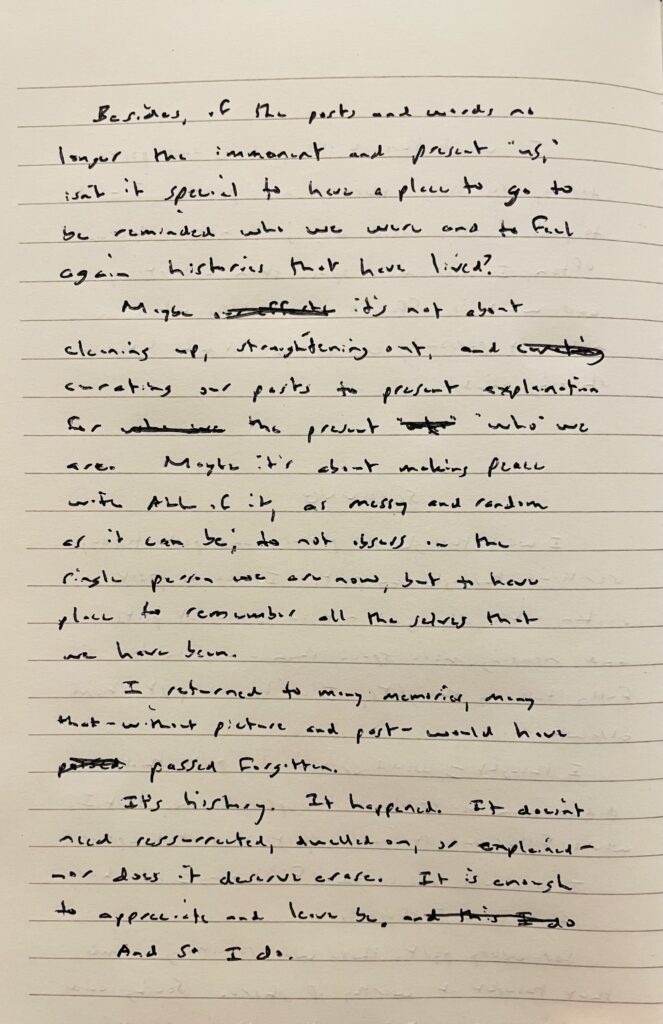 Besides, if the posts and words no
longer the immanent and present "us,"
isn't it special to have a place to go to
be reminded who we were and to feel
again histories that have lived?
Maybe it's not about
cleaning up, straightening out, and
curating our posts to present explanation
for the present "who" we
are. Maybe it's about making peace
with ALL of it, as messy and random
as it can be; to not obsess on the
single person we are now, but to have
place to remember all the selves that
we have been.
I returned to many memories, many
that-without picture and post-would have
passed forgotten.
It's history. It happened. It doesn't
need ressurrected, dwelled on, or explained-
nor does it deserve erase. It is enough
to appreciate and leave be. and this I do
And so I do.